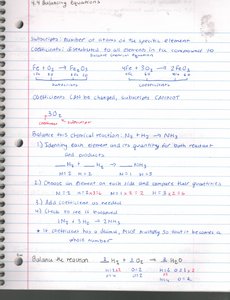 4.4 Balancing Equations
Subscripts: Number of atoms of the specific element
Coefficients: distributed to all elements in the compound to
balance chemical equation
Fe + O₂ → Fe₂O₃ 4Fe + 3O₂ → 2Fe₂O₃
Subscripts Coefficients
Coefficients CAN be changed, subscripts CANNOT
3O₂
coefficient subscript
Balance this chemical reaction: N₂ + H₂ → NH₃
1) Identify each element and its quantity for both reactant
and products
__ N₂ + __ H₂ → __ NH₃
N=2 H=2 N=1 H=3
2) Choose an element on each side and compare their quantities
3) Add coefficients as needed
4) Check to see if balanced
1N₂ + 3H₂ → 2NH₃
* If coefficient has a decimal, must multiply so that it becomes a
whole number
Balance the reaction 2 H₂ + 1 O₂ → 2 H₂O